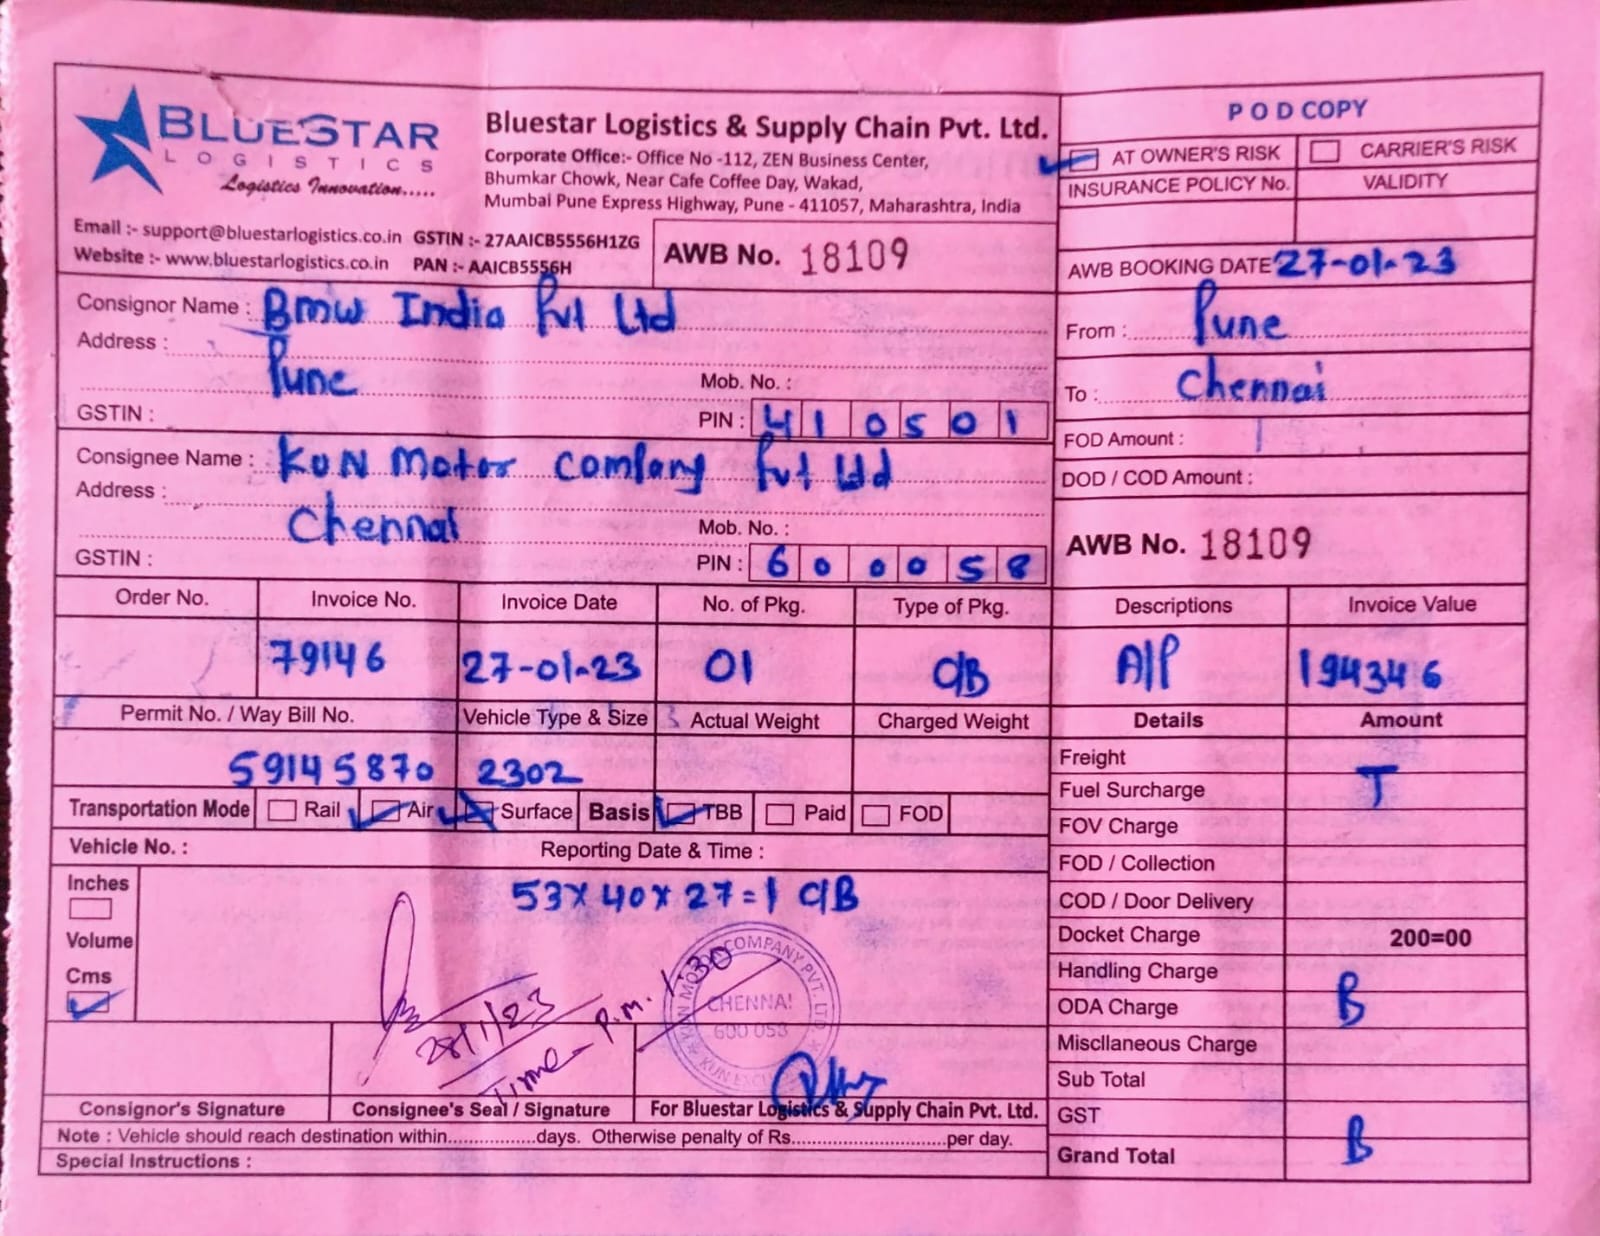 BLUESTAR
LOGISTICS
Logistics Innovation.....
Bluestar Logistics & Supply Chain Pvt. Ltd.
Corporate Office:- Office No -112, ZEN Business Center,
Bhumkar Chowk, Near Cafe Coffee Day, Wakad,
Mumbai Pune Express Highway, Pune - 411057, Maharashtra, India
Email :- support@bluestarlogistics.co.in GSTIN :- 27AAICB5556H1ZG
Website :- www.bluestarlogistics.co.in PAN :- AAICB5556H
AWB No. 18109
P O D COPY
AT OWNER'S RISK CARRIER'S RISK
INSURANCE POLICY No. VALIDITY
AWB BOOKING DATE 27-01-23
From : Pune
To : Chennai
FOD Amount :
DOD / COD Amount :
AWB No. 18109
Consignor Name : BMW India Pvt Ltd
Address :
Pune Mob. No. :
GSTIN : PIN : 410501
Consignee Name : KUN Motor Company Pvt Ltd
Address :
Chennai Mob. No. :
GSTIN : PIN : 600058
Order No. Invoice No. Invoice Date No. of Pkg. Type of Pkg. Descriptions Invoice Value
79146 27-01-23 01 C/B A/P 194346
Permit No. / Way Bill No. Vehicle Type & Size Actual Weight Charged Weight Details Amount
59145870 2302
Transportation Mode Rail Air Surface Basis TBB Paid FOD
Vehicle No. : Reporting Date & Time :
Inches
Volume
Cms
53 x 40 x 27 = 1 C/B
28/1/23
Time - P.m. 1.30
KUN MOTOR COMPANY PVT. LTD
CHENNAI
600 058
Consignor's Signature Consignee's Seal / Signature For Bluestar Logistics & Supply Chain Pvt. Ltd.
Note : Vehicle should reach destination within.................days. Otherwise penalty of Rs..............................per day.
Special Instructions :
Freight
Fuel Surcharge T
FOV Charge
FOD / Collection
COD / Door Delivery
Docket Charge 200=00
Handling Charge
ODA Charge B
Miscllaneous Charge
Sub Total
GST
Grand Total B